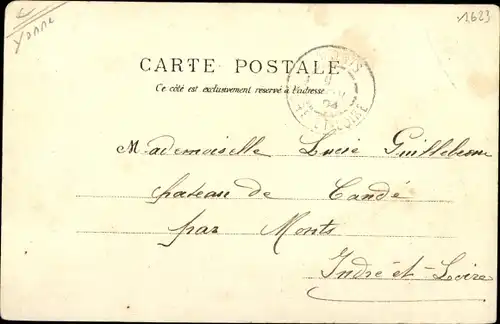 Yonne
1623
CARTE POSTALE
Ce côté est exclusivement réservé à l'adresse
Mademoiselle Lucie Guillebeau
chateau de Candé
par Monts
Indre-et-Loire